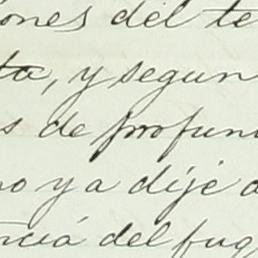 iones del te
ta, y segun
s de profun
no ya dije a
ncia del fug